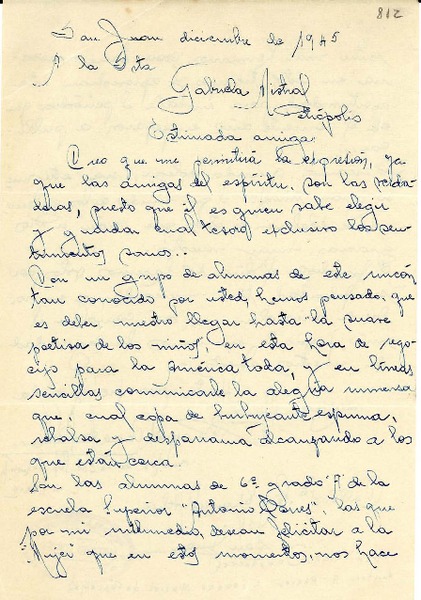 812
San Juan diciembre de 1945
A la Srta
Gabriela Mistral
Petrópolis
Estimada amiga:
Creo que me permitirá la expresión, ya
que las amigas del espíritu, son las verda-
deras, puesto que él es quien sabe elegir
y guardar cual tesoro exclusivo los sen-
timientos sanos..
Con un grupo de alumnas de este rincón
tan conocido por usted, hemos pensado, que
es deber nuestro llegar hasta "la suave
poetisa de los niños", en esta hora de rego-
cijo para la América toda, y en líneas
sencillas comunicarle la alegría inmensa
que, cual copa de burbujeante espuma,
rebalsa y desparrama alcanzando a los
que están cerca.
Son las alumnas de 6º grado "A" de la
escuela Superior "Antonio Torres", las que
por mi intermedio, desean felicitar a la
Mujer que en estos momentos, nos hace